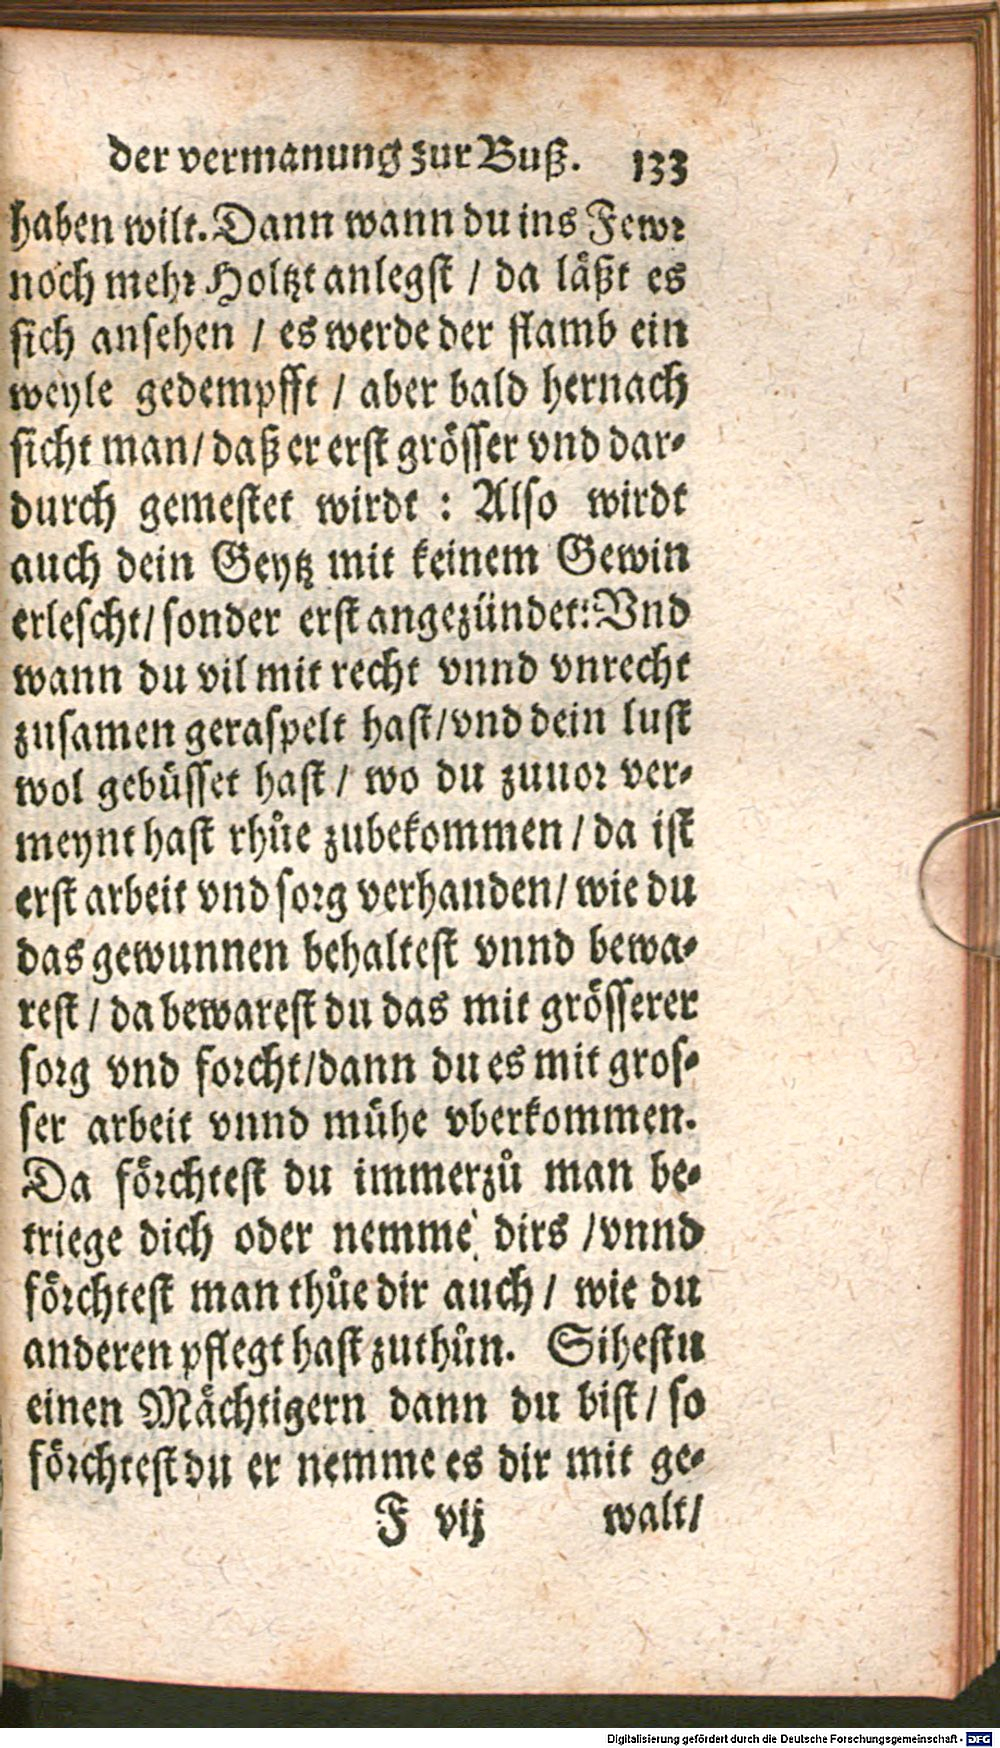 der vermanung zur Buß. 133
haben wilt. Dann wann du ins Fewr
noch mehr Holtzt anlegst / da läßt es
sich ansehen / es werde der flamb ein
weyle gedempfft / aber bald hernach
sicht man / daß er erst grösser vnd dar-
durch gemestet wirdt : Also wirdt
auch dein Geytz mit keinem Gewin
erlescht / sonder erst angezündet: Vnd
wann du vil mit recht vnnd vnrecht
zusamen geraspelt hast / vnd dein lust
wol gebüsset hast / wo du zuuor ver-
meynt hast rhůe zubekommen / da ist
erst arbeit vnd sorg verhanden / wie du
das gewunnen behaltest vnnd bewa-
rest / da bewarest du das mit grösserer
sorg vnd forcht / dann du es mit gros-
ser arbeit vnnd mühe vberkommen.
Da förchtest du immerzů man be-
triege dich oder nemme dirs / vnnd
förchtest man thůe dir auch / wie du
anderen pflegt hast zuthůn. Sihestu
einen Mächtigern dann du bist / so
förchtest du er nemme es dir mit ge-
F vij walt /
Digitalisierung gefördert durch die Deutsche Forschungsgemeinschaft - DFG